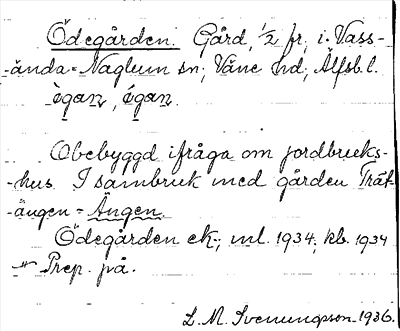 Ödegården. Gård, 1/2 fr, i Vass-
-ända-Naglum sn; Väne hd, Älfsb.l.
ègan, égan.
Obebyggd ifråga om jordbruks-
-hus. I sambruk med gården Trät-
-ängen = Ängen.
Ödegården ek; ml. 1934; kb. 1934
Prep. på.
L. M. Svenungsson 1936.